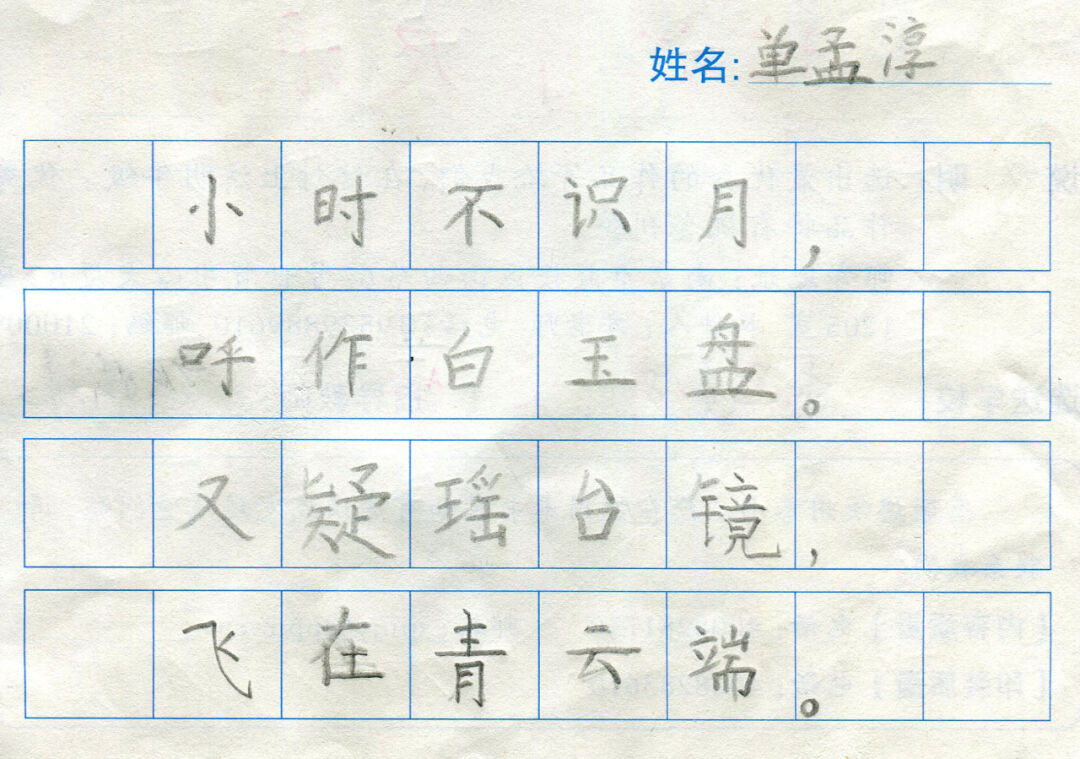 姓名: 单孟淳
小时不识月，
呼作白玉盘。
又疑瑶台镜，
飞在青云端。